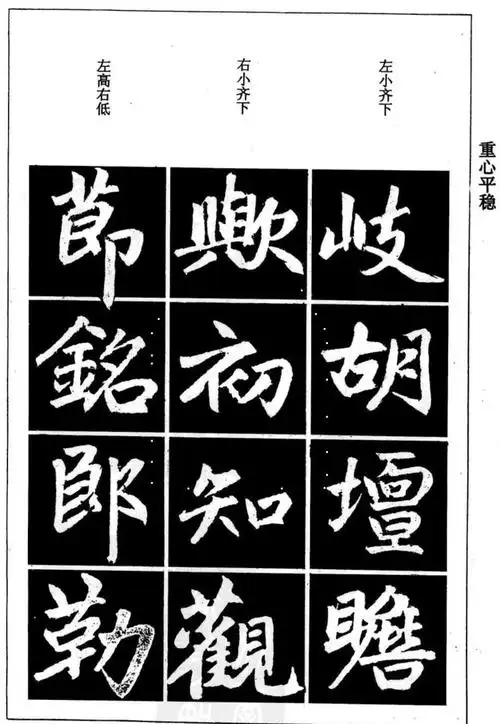 重心平稳
左小齐下
岐
胡
壇
瞻
右小齐下
歟
初
知
觀
左高右低
節
銘
郎
勒